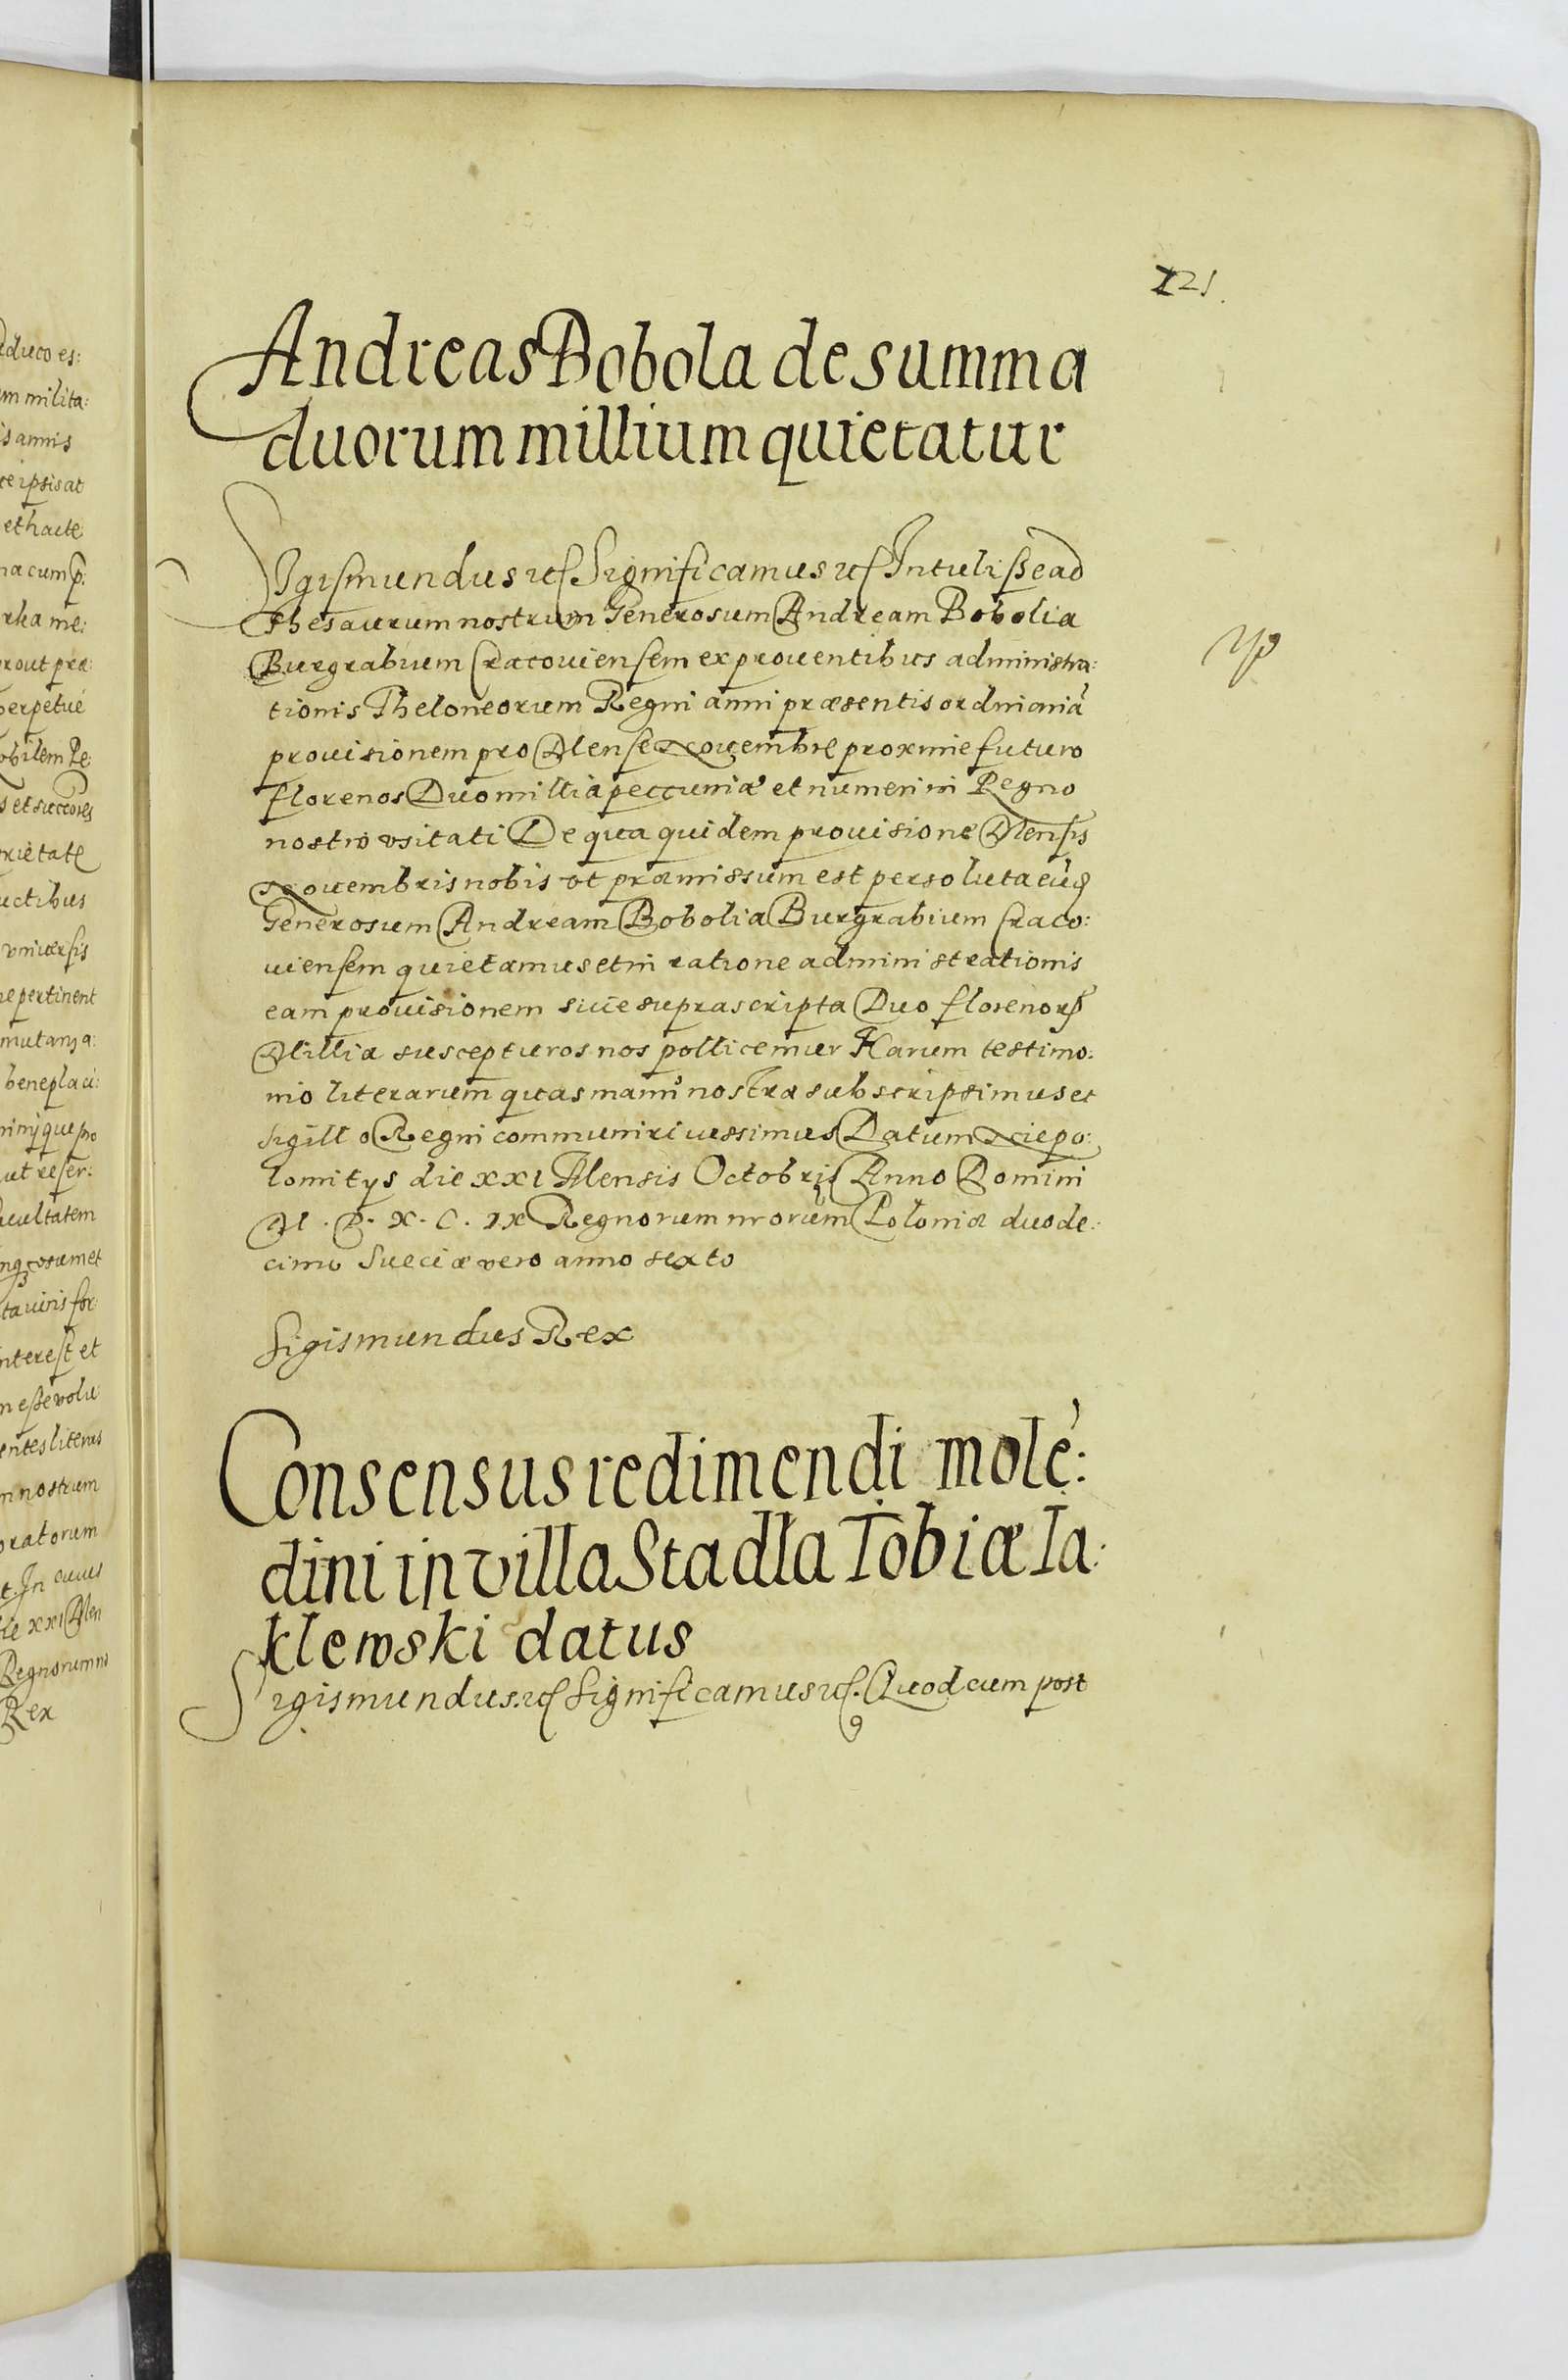 121.
Andreas Bobola de summa
duorum millium quietatur
Sigismundus etc Significamus etc Intulisse ad
Thesaurum nostrum Generosum Andream Bobolia
Burgrabium Cracouiensem ex prouentibus administra:
tionis Theloneorum Regni anni præsentis ordinariā
prouisionem pro Mense Nouembre proxime futuro
florenos Duo millia peccuniæ et numeri in Regno
nostro vsitati De qua quidem prouisione Mensis
Nouembris nobis vt præmissum est persoluta eūq
Generosum Andream Bobolia Burgrabium Craco:
uiensem quietamus et in ratione administrationis
eam prouisionem siue suprascripta Duo florenorū
Millia suscepturos nos pollicemur Harum testimo:
nio literarum quas manu nostra subscripsimus et
Sigillo Regni communiri iussimus Datum Niepo:
lomitys die XXI Mensis Octobris Anno Domini
M. D. X. C. IX Regnorum nrorum Poloniæ duode:
cimo Sueciæ vero anno sexto
Sigismundus Rex
Consensus redimendi molē:
dini in villa Stadla Tobiæ Ia:
klewski datus
Sigismundus etc Significamus etc. Quod cum post
aduco es:
m milita:
is annis
e ipsis at
et hacte
na cum p:
rout præ:
perpetué
obilem Pe:
s et succores
rietate
uctibus
vniuersis
e pertinent
mutanza:
beneplaci:
ut reser:
acultatem
nterest et
n esse volu:
entes literas
m nostrum
oratorum
t. In cuius
ie XXI Men
Regnorum no
Rex